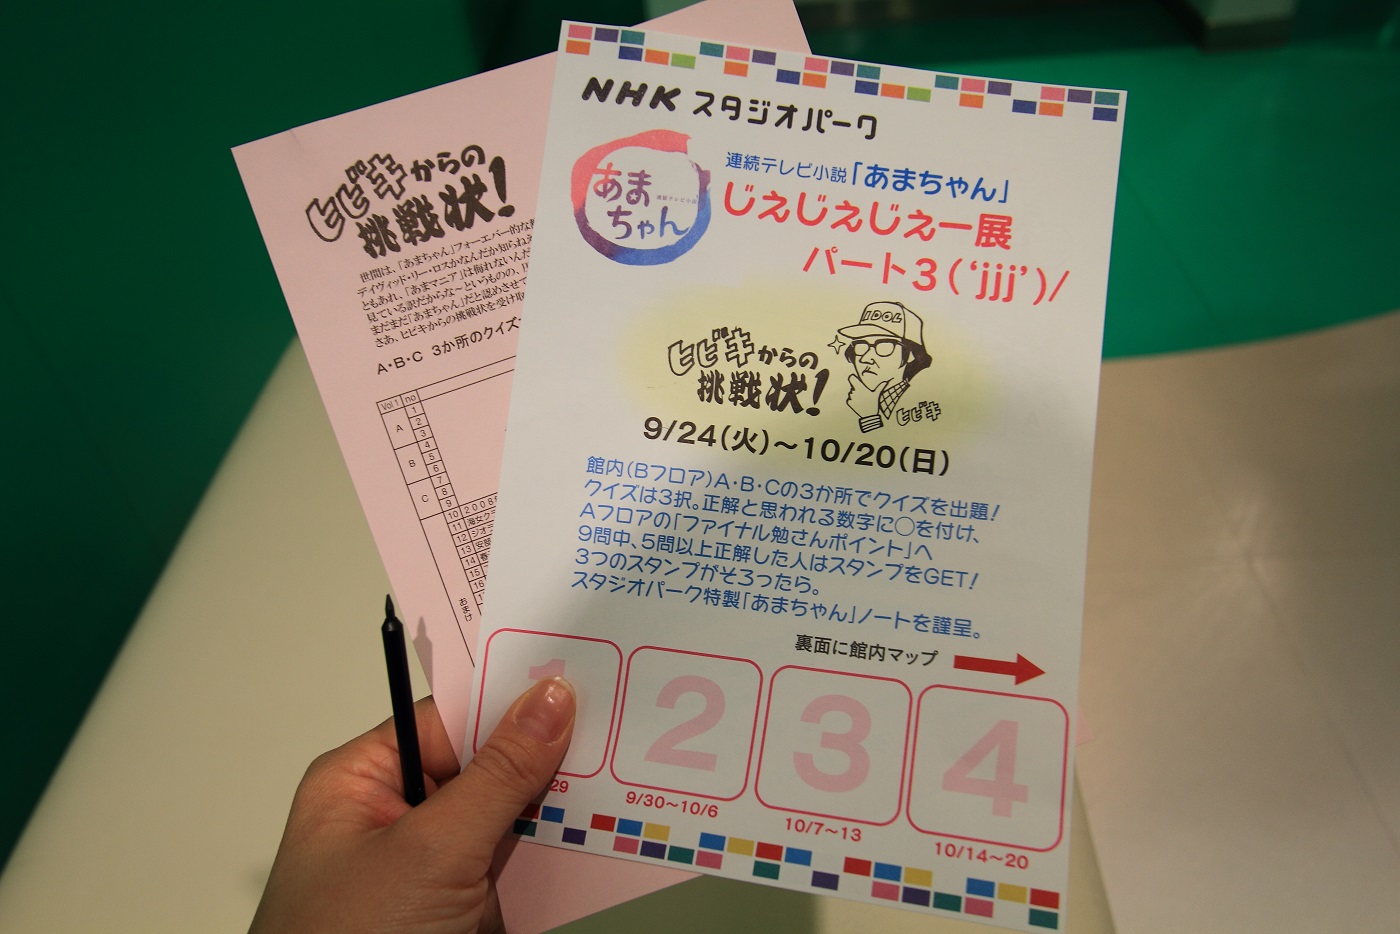 NHK スタジオパーク
あま
ちゃん
連続テレビ小説
連続テレビ小説「あまちゃん」
じぇじぇじぇー展
パート3（‘jjj’）/
IDOL
ヒビキからの
挑戦状！
ヒビキ
9/24(火)～10/20(日)
館内（Bフロア）A・B・Cの3か所でクイズを出題！
クイズは3択。正解と思われる数字に○を付け、
Aフロアの「ファイナル勉さんポイント」へ
9問中、5問以上正解した人はスタンプをGET！
3つのスタンプがそろったら。
スタジオパーク特製「あまちゃん」ノートを謹呈。
裏面に館内マップ
1
2
3
4
29
9/30～10/6
10/7～13
10/14～20
ヒビキからの
挑戦状！
世間は、「あまちゃん」フォーエバー的な
デイヴィッド・リー・ロスかなんだか知らねえ
ともあれ、「あまマニア」は侮れないんだ
見ている訳だからな～というものの、
まだまだ「あまちゃん」だと認めさせて
さあ、ヒビキからの挑戦状を受け取
A・B・C 3か所のクイズ
Vol.1 no
A 1
2
3
B 4
5
6
C 7
8
9
おまけ 10 2008
11 海女ク
12 ジオ
13 安部
14 春
15
16